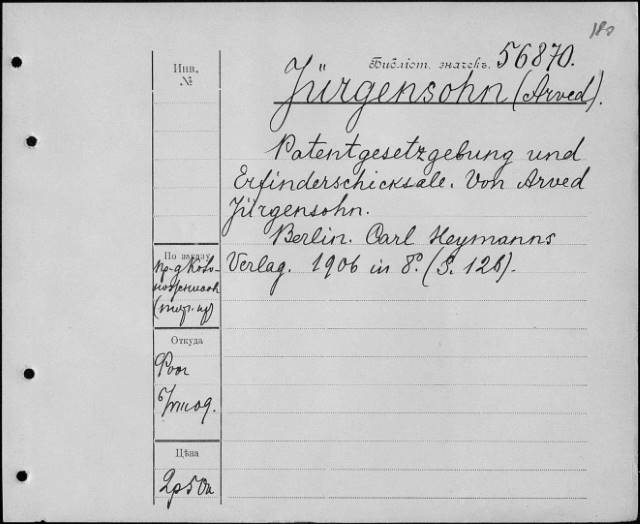 180
Инв. №
Библіот. значекъ. 56870.
Jürgensohn (Arved).
Patentgesetzgebung und
Erfinderschicksale. Von Arved
Jürgensohn.
Berlin. Carl Heymanns
Verlag. 1906 in 8º. (S. 126).
По заказу
Откуда
6/VIII 09.
Цѣна
2р 50к